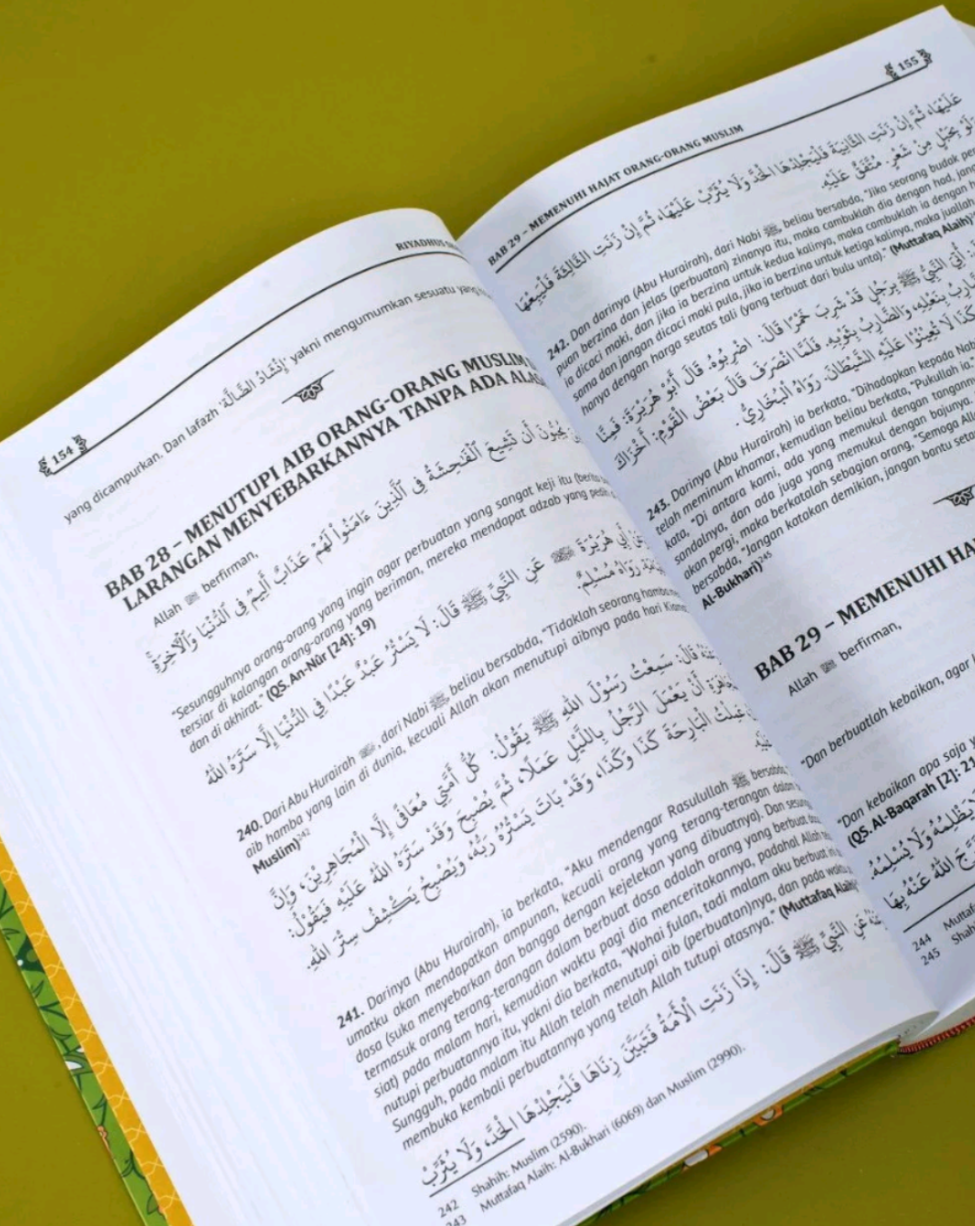 154
RIYADHUS
yang dicampurkan. Dan lafazh "إِنْشَادُ الضَّالَّةِ" yakni mengumumkan sesuatu yang
BAB 28 – MENUTUPI AIB ORANG-ORANG MUSLIM
LARANGAN MENYEBARKANNYA TANPA ADA
Allah berfirman,
يُحِبُّونَ أَن تَشِيعَ ٱلْفَٰحِشَةُ فِي ٱلَّذِينَ ءَامَنُوا۟ لَهُمْ عَذَابٌ أَلِيمٌ فِي ٱلدُّنْيَا وَٱلْءَاخِرَةِ
"Sesungguhnya orang-orang yang ingin agar perbuatan yang sangat keji itu (berita
tersiar di kalangan orang-orang yang beriman, mereka mendapat adzab yang pedih
dan di akhirat." (QS. An-Nûr [24]: 19)
عَنْ أَبِي هُرَيْرَةَ ﷺ عَنِ النَّبِيِّ ﷺ قَالَ: لَا يَسْتُرُ عَبْدٌ عَبْدًا فِي الدُّنْيَا إِلَّا سَتَرَهُ اللهُ
رَوَاهُ مُسْلِمٌ.
240. Dari Abu Hurairah, dari Nabi ﷺ, beliau bersabda, "Tidaklah seorang hamba
aib hamba yang lain di dunia, kecuali Allah akan menutupi aibnya pada hari
Muslim)242
قَالَ: سَمِعْتُ رَسُوْلَ اللهِ ﷺ يَقُوْلُ: كُلُّ أُمَّتِي مُعَافًى إِلَّا الْمُجَاهِرِيْنَ، وَإِنَّ
أَنْ يَعْمَلَ الرَّجُلُ بِاللَّيْلِ عَمَلًا، ثُمَّ يُصْبِحَ وَقَدْ سَتَرَهُ اللهُ عَلَيْهِ فَيَقُوْلُ:
عَمِلْتُ الْبَارِحَةَ كَذَا وَكَذَا، وَقَدْ بَاتَ يَسْتُرُهُ رَبُّهُ، وَيُصْبِحُ يَكْشِفُ سِتْرَ اللهِ.
241. Darinya (Abu Hurairah), ia berkata, "Aku mendengar Rasulullah ﷺ bersabda,
umatku akan mendapatkan ampunan, kecuali orang yang terang-terangan dalam
dosa (suka menyebarkan dan bangga dengan kejelekan yang dibuatnya). Dan
termasuk orang terang-terangan dalam berbuat dosa adalah orang yang berbuat
siat) pada malam hari, kemudian waktu pagi dia menceritakannya, padahal Allah
nutupi perbuatannya itu, yakni dia berkata, "Wahai fulan, tadi malam aku berbuat
Sungguh, pada malam itu Allah telah menutupi aib (perbuatan)nya, dan pada
membuka kembali perbuatannya yang telah Allah tutupi atasnya." (Muttafaq Alaih)
عَنِ النَّبِيِّ ﷺ قَالَ: إِذَا زَنَتِ الْأَمَةُ فَتَبَيَّنَ زِنَاهَا فَلْيَجْلِدْهَا الْحَدَّ، وَلَا يُثَرِّبْ
242 Shahih: Muslim (2590).
243 Muttafaq Alaih: Al-Bukhari (6069) dan Muslim (2990).
155
BAB 29 – MEMENUHI HAJAT ORANG-ORANG MUSLIM
عَلَيْهَا، ثُمَّ إِنْ زَنَتِ الثَّانِيَةَ فَلْيَجْلِدْهَا الْحَدَّ وَلَا يُثَرِّبْ عَلَيْهَا، ثُمَّ إِنْ زَنَتِ الثَّالِثَةَ فَلْيَبِعْهَا
وَلَوْ بِحَبْلٍ مِنْ شَعَرٍ. مُتَّفَقٌ عَلَيْهِ.
242. Dan darinya (Abu Hurairah), dari Nabi ﷺ, beliau bersabda, "Jika seorang budak
puan berzina dan jelas (perbuatan) zinanya itu, maka cambuklah dia dengan had,
ia dicaci maki, dan jika ia berzina untuk kedua kalinya, maka cambuklah ia dengan
sama dan jangan dicaci maki pula, jika ia berzina untuk ketiga kalinya, maka juallah
hanya dengan harga seutas tali (yang terbuat dari bulu unta)". (Muttafaq Alaih)
أُتِيَ النَّبِيُّ ﷺ بِرَجُلٍ قَدْ شَرِبَ خَمْرًا قَالَ: اضْرِبُوهُ. قَالَ أَبُوْ هُرَيْرَةَ: فَمِنَّا
بِنَعْلِهِ، وَالضَّارِبُ بِثَوْبِهِ. فَلَمَّا انْصَرَفَ قَالَ بَعْضُ الْقَوْمِ: أَخْزَاكَ
لَا تُعِيْنُوْا عَلَيْهِ الشَّيْطَانَ. رَوَاهُ الْبُخَارِيُّ.
243. Darinya (Abu Hurairah) ia berkata, "Dihadapkan kepada
telah meminum khamar, kemudian beliau berkata, "Pukullah
kata, "Di antara kami, ada yang memukul dengan
sandalnya, dan ada juga yang memukul dengan bajunya
akan pergi, maka berkatalah sebagian orang, "Semoga
bersabda, "Jangan katakan demikian, jangan bantu
Al-Bukhari)245
BAB 29 – MEMENUHI
Allah berfirman,
"Dan berbuatlah kebaikan, agar
"Dan kebaikan apa saja
(QS. Al-Baqarah [2]:
يَظْلِمُهُ وَلَا يُسْلِمُهُ.
اللهُ عَنْهُ بِهَا
244
245